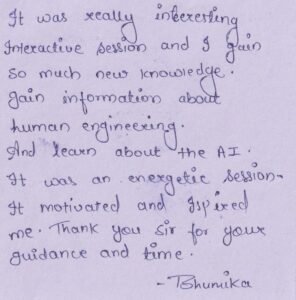 It was really interesting
Interactive session and I gain
so much new knowledge.
Gain information about
human engineering.
And learn about the AI.
It was an energetic session.
It motivated and Ispired
me. Thank you sir for your
guidance and time.
- Bhumika